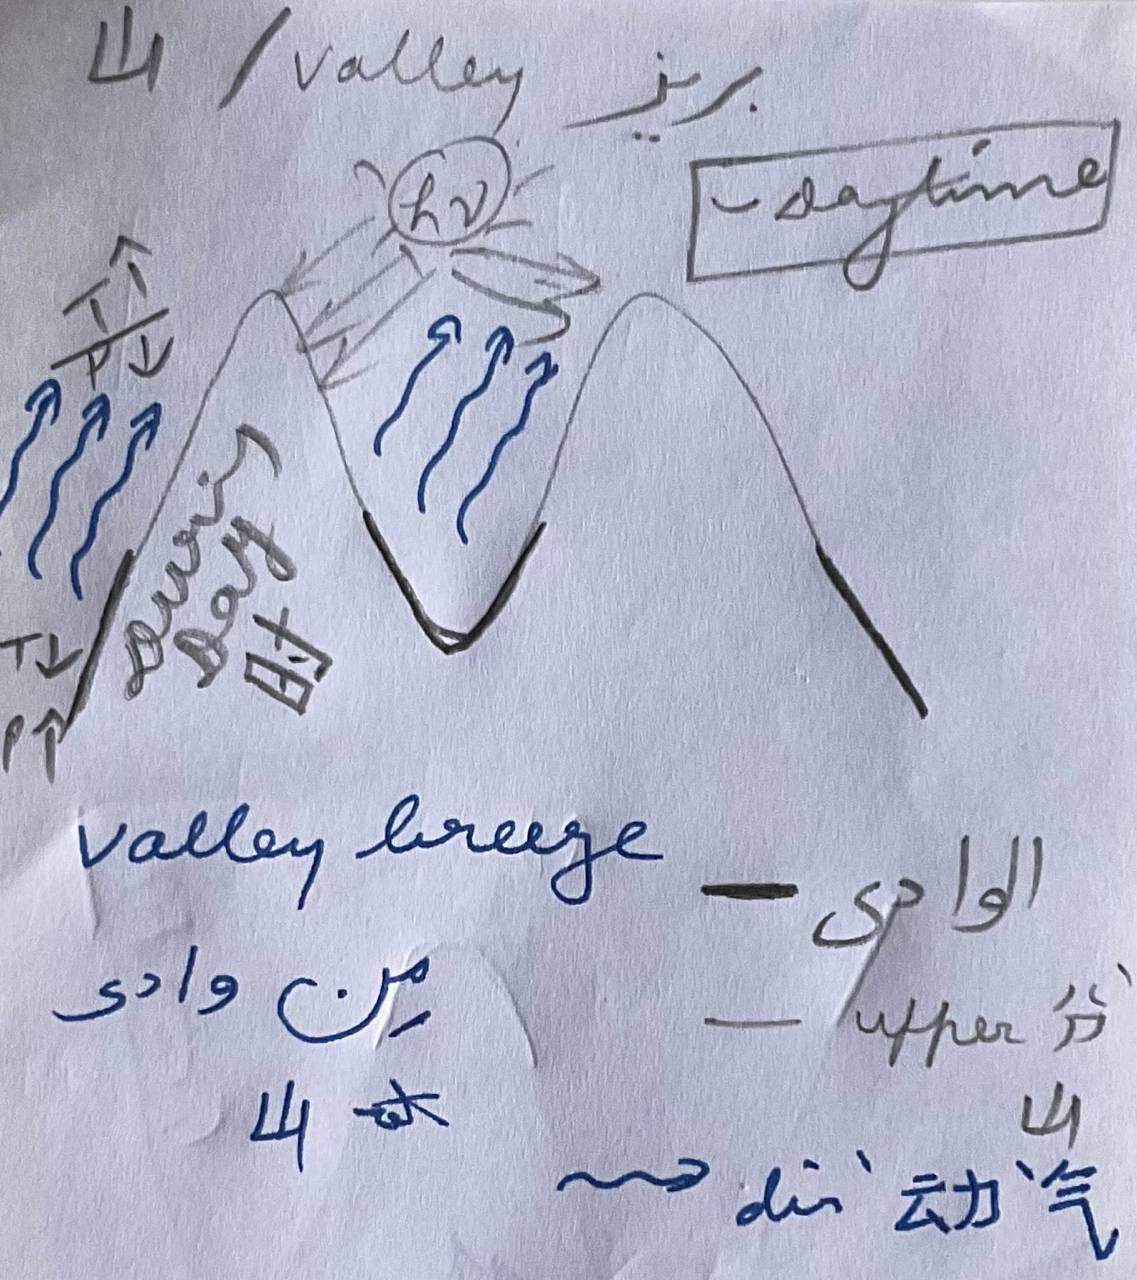 山 / valley بريز
- daytime
hν
T↑
P↓
During
Day
时
T↓
P↑
valley breeze
من وادى
山
الوادى
upper 分
山
dirⁿ 动 气